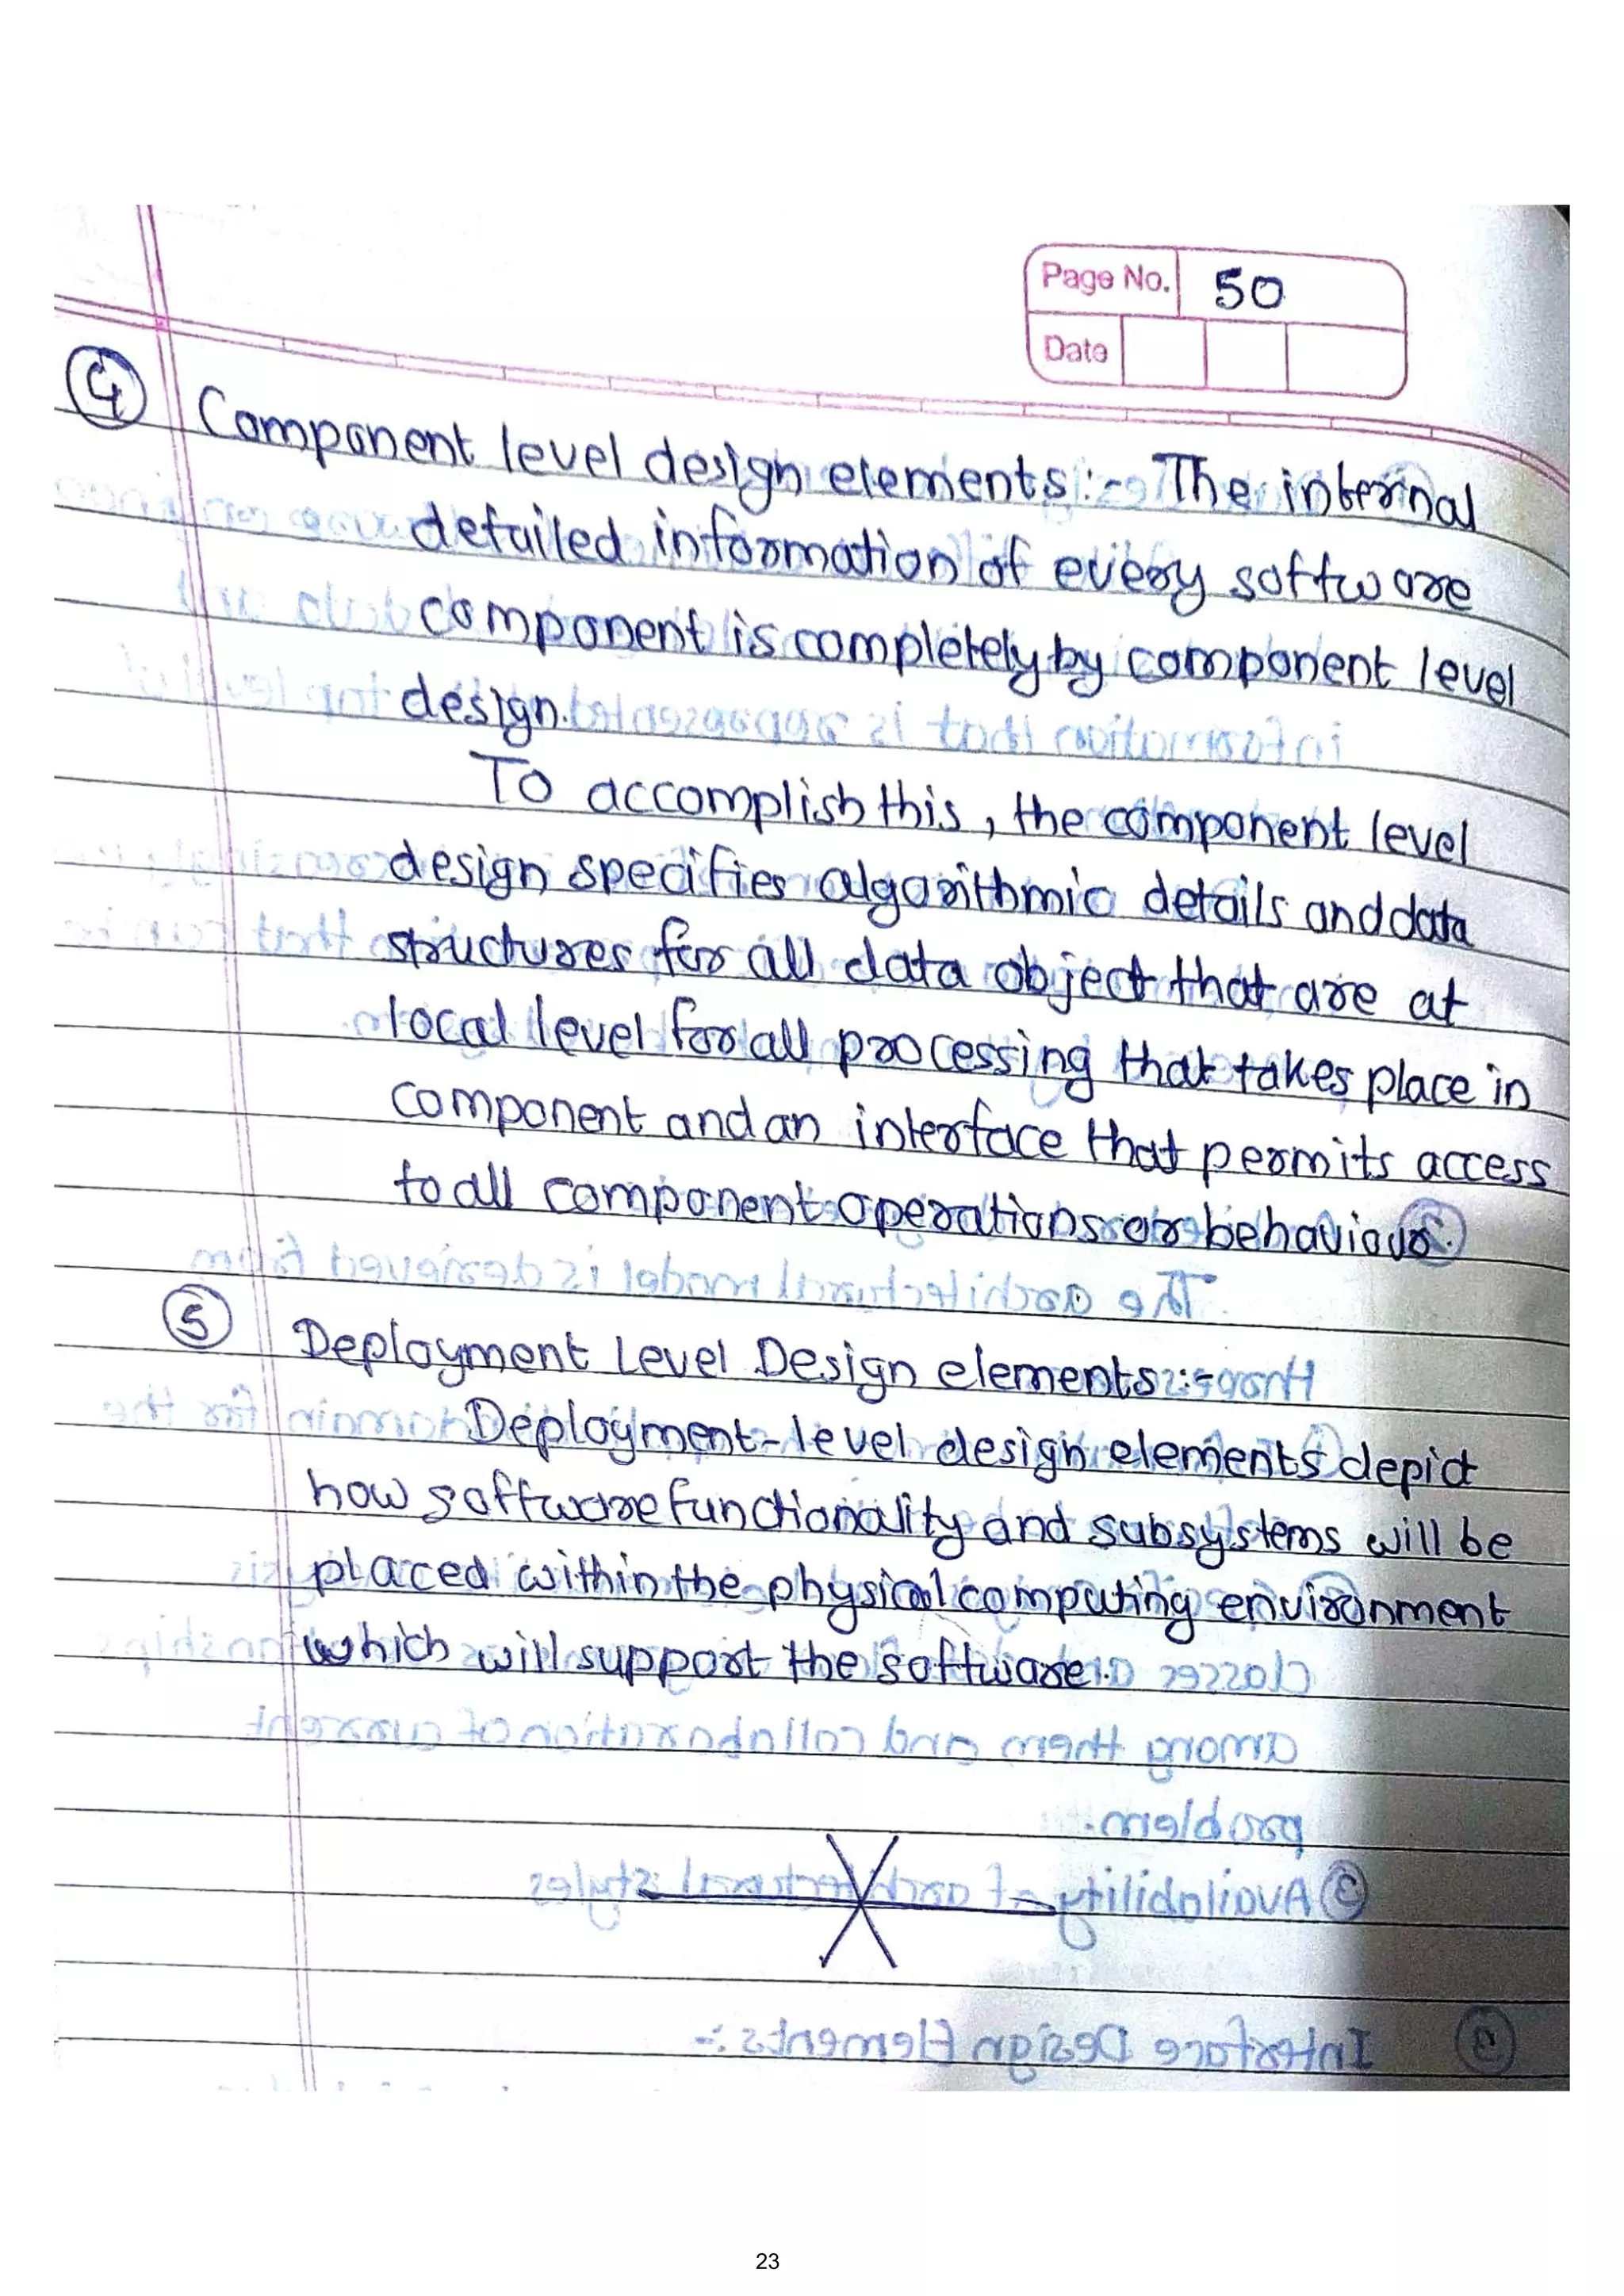 Page No. 50
Date
4 Component level design elements :- The internal
detailed information of every software
component is completely by component level
design.
To accomplish this, the component level
design specifies algorithmic details and data
structures for all data object that are at
local level for all processing that takes place in
component and an interface that permits access
to all component operations or behaviour.
5 Deployment Level Design elements :-
Deployment-level design elements depict
how software functionality and subsystems will be
placed within the physical computing environment
which will support the software.
23